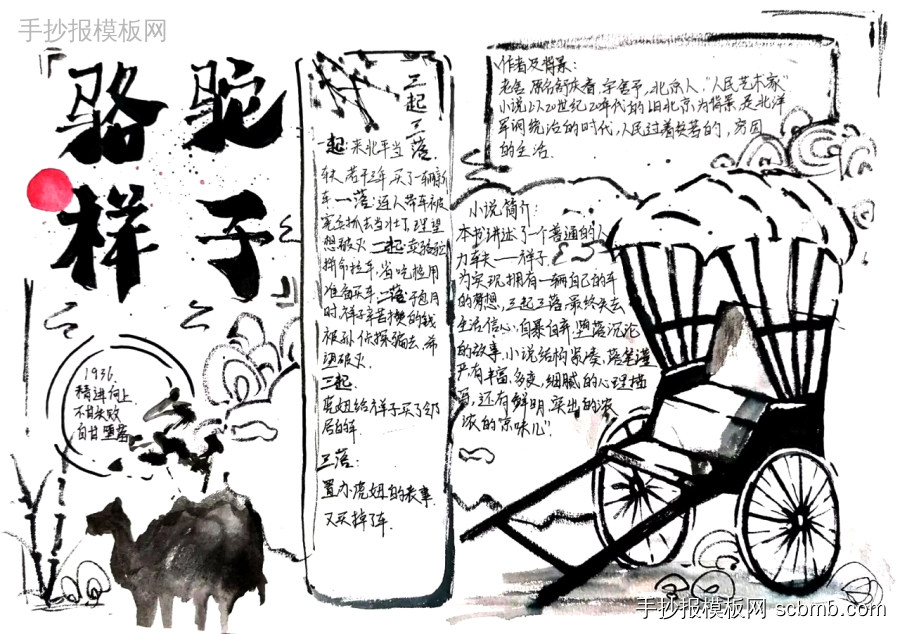 手抄报模板网
骆驼
样子
1936.
精进向上
不甘失败
自甘堕落
三起三落
一起:来北平当
车夫,苦干三年,买了一辆新
车一落:连人带车被
宪兵抓去当壮丁,理想
想破灭二起:卖骆驼
拼命拉车,省吃俭用
准备买车,二落:子包月
时,祥子辛苦攒的钱
被孙侦探骗去,希
望破灭.
三起:
虎妞给祥子买了邻
居的车.
三落:
置办虎妞的丧事
又买掉了车.
作者及背景:
老舍 原名舒庆春,字舍予,北京人.“人民艺术家”
小说以20世纪20年代的旧北京为背景.是北洋
军阀统治的时代,人民过着贫苦的,穷困
的生活.
小说简介:
本书讲述了一个普通的人
力车夫——祥子.
为实现拥有一辆自己的车
的梦想,三起三落,最终失去
生活信心,自暴自弃,堕落沉沦
的故事,小说结构紧凑,落笔谨
严有丰富,多变,细腻的心理描
写,还有鲜明突出的浓
浓的“京味儿”.
手抄报模板网 scbmb.com